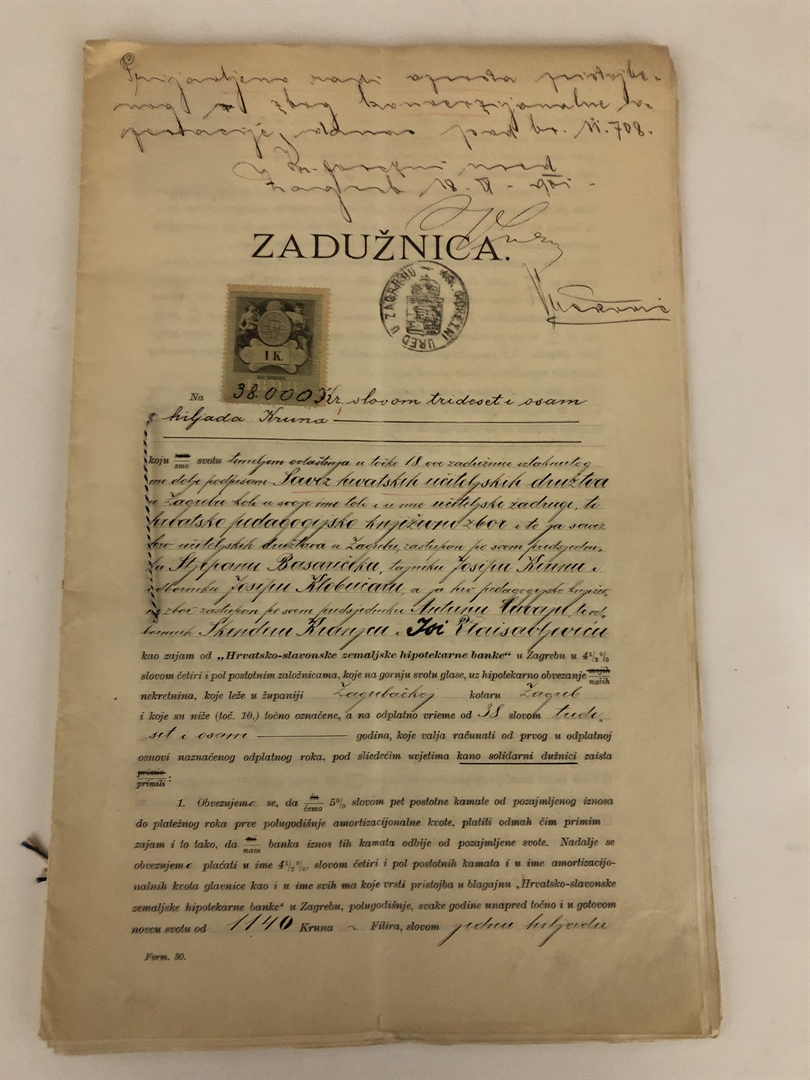 Prijavljeno radi oprosta pristojbe-
nog i zbog konverzijonalne
danas pod br. VI. 708.
ured
Zagreb 18
ZADUŽNICA.
KR. POREZNI URED U ZAGREBU
1 K.
Na 38.000 Kr. slovom trideset i osam
hiljada Kruna
koju svotu temeljem ovlaštenja u točke 18 ove zadužnice
dolje podpisani Savez hrvatskih učiteljskih družtva
u Zagrebu koli u svoje ime toli i u ime učiteljske zadruge, te
hrvatsko pedagogijsko književni zbor i to ja savez
hrv učiteljskih družtava u Zagrebu, zastupan po svom predsjedni-
ku Stjepanu Basaričeku, tajniku Josipu Kirinu i
odborniku Josipu Klobučaru, a ja hrv pedagogijsko književ-
ni zbor zastupan po svom predsjedniku Antunu
Skenderu Kranjcu i Isi Vlaisavljeviću
kao zajam od „Hrvatsko-slavonske zemaljske hipotekarne banke“ u Zagrebu u 4½%
slovom četiri i pol postotnim založnicama, koje na gornju svotu glase, uz hipotekarno obvezanje mojih naših
nekretnina, koje leže u županiji Zagrebačkoj kotaru Zagreb
i koje su niže (toč. 10.) točno označene, a na odplatno vrieme od 38 slovom tride
set i osam godina, koje valja računati od prvog u odplatnoj
osnovi naznačenog odplatnog roka, pod sliedećim uvjetima kano solidarni dužnici zaista
primio primili :
1. Obvezujeme se, da ću ćemo 5% slovom pet postotne kamate od pozajmljenog iznosa
do platežnog roka prve polugodišnje amortizacijonalne kvote, platiti odmah čim primim
zajam i to tako, da mi nam banka iznos tih kamata odbije od pozajmljene svote. Nadalje se
obvezujeme plaćati u ime 4½%, slovom četiri i pol postotnih kamata i u ime amortizacijo-
nalnih kvota glavnice kao i u ime svih ma koje vrsti pristojba u blagajnu „Hrvatsko-slavonske
zemaljske hipotekarne banke“ u Zagrebu, polugodišnje, svake godine unapred točno i u gotovom
novcu svotu od 1140 Kruna ~ Filira, slovom jednu hiljadu
Form. 30.